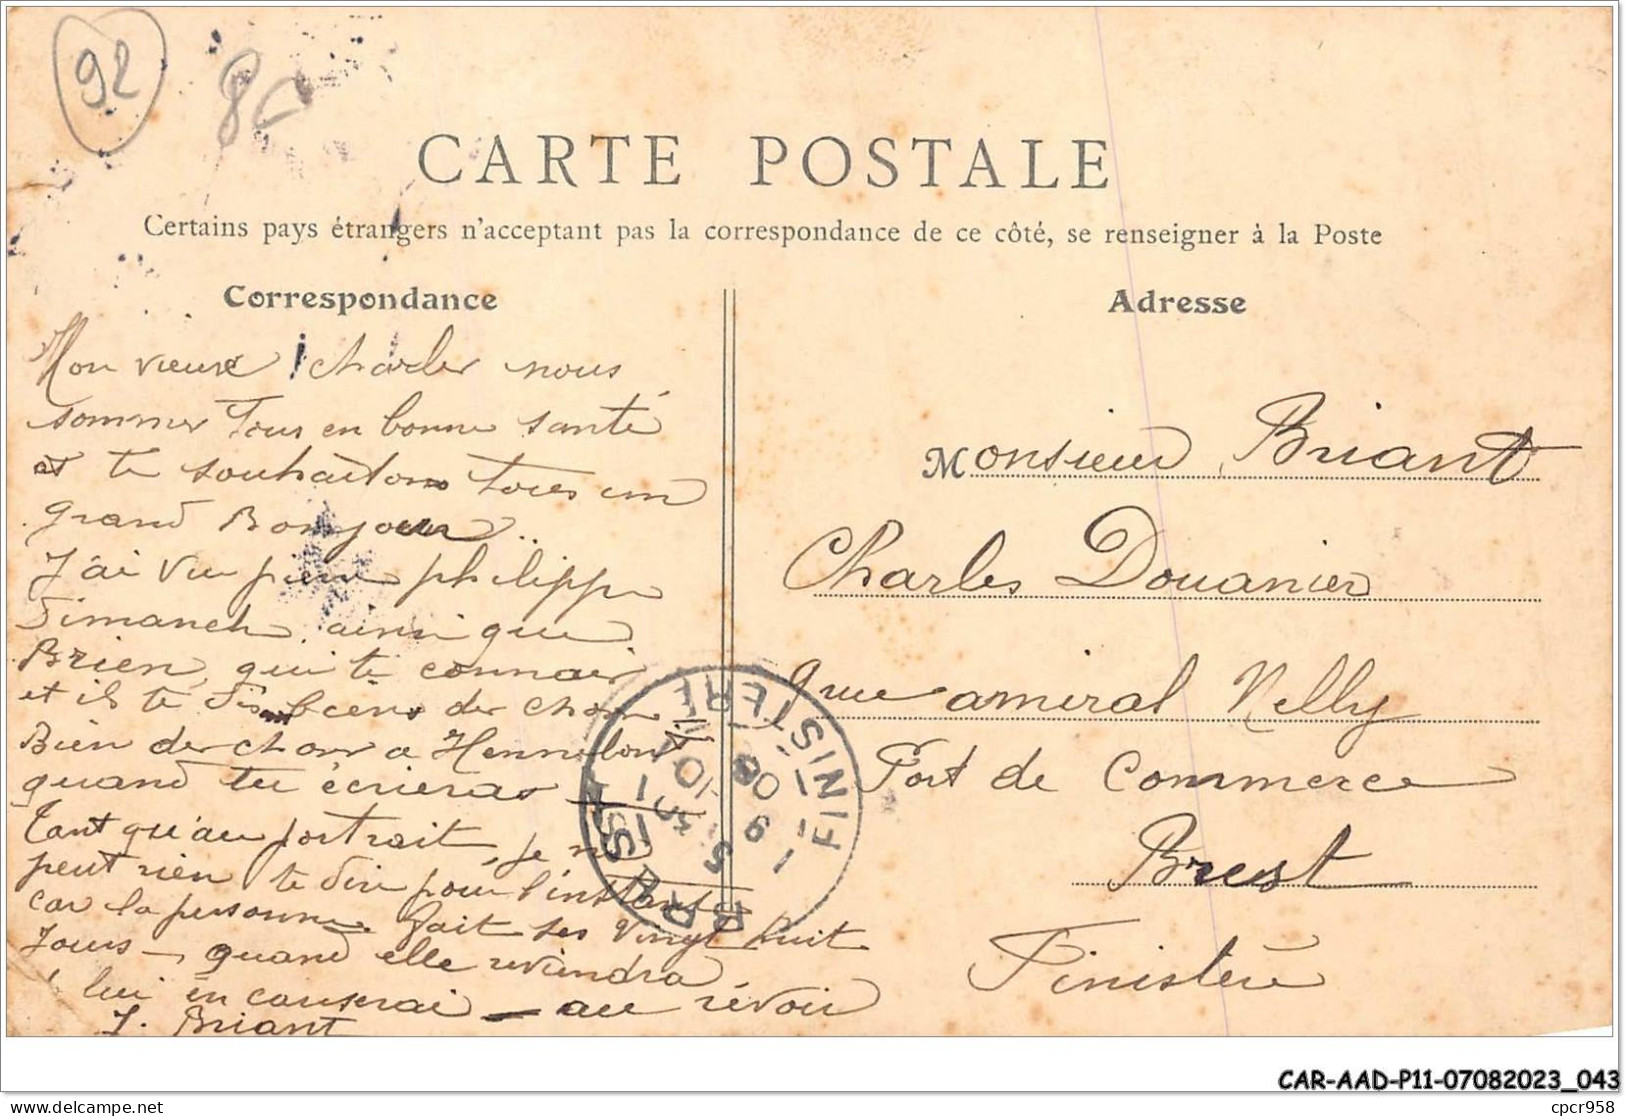 92
CARTE POSTALE
Certains pays étrangers n'acceptent pas la correspondance de ce côté, se renseigner à la Poste
Correspondance
Adresse
Mon vieux Charles nous
sommes Tous en bonne santé
et te souhaitons tous un
grand Bonjour..
J'ai vu pierre philippe
Dimanch ainsi que
Brien, qui te connais
et il te dis bien des chose
Bien des chose a Hennebont
quand tu écrieras
Tant qu'au portrait, je ne
peut rien te dire pour l'instant
car la personne fait ses vingt huit
Jours - quand elle reviendra
lui en causerai - au révoir
J. Briant
Monsieur Briant
Charles Douanier
amiral Nelly
Port de Commerce
Brest
Finistère
BREST
FINISTERE
CAR-AAD-P11-07082023_043
delcampe.net
cpcr958